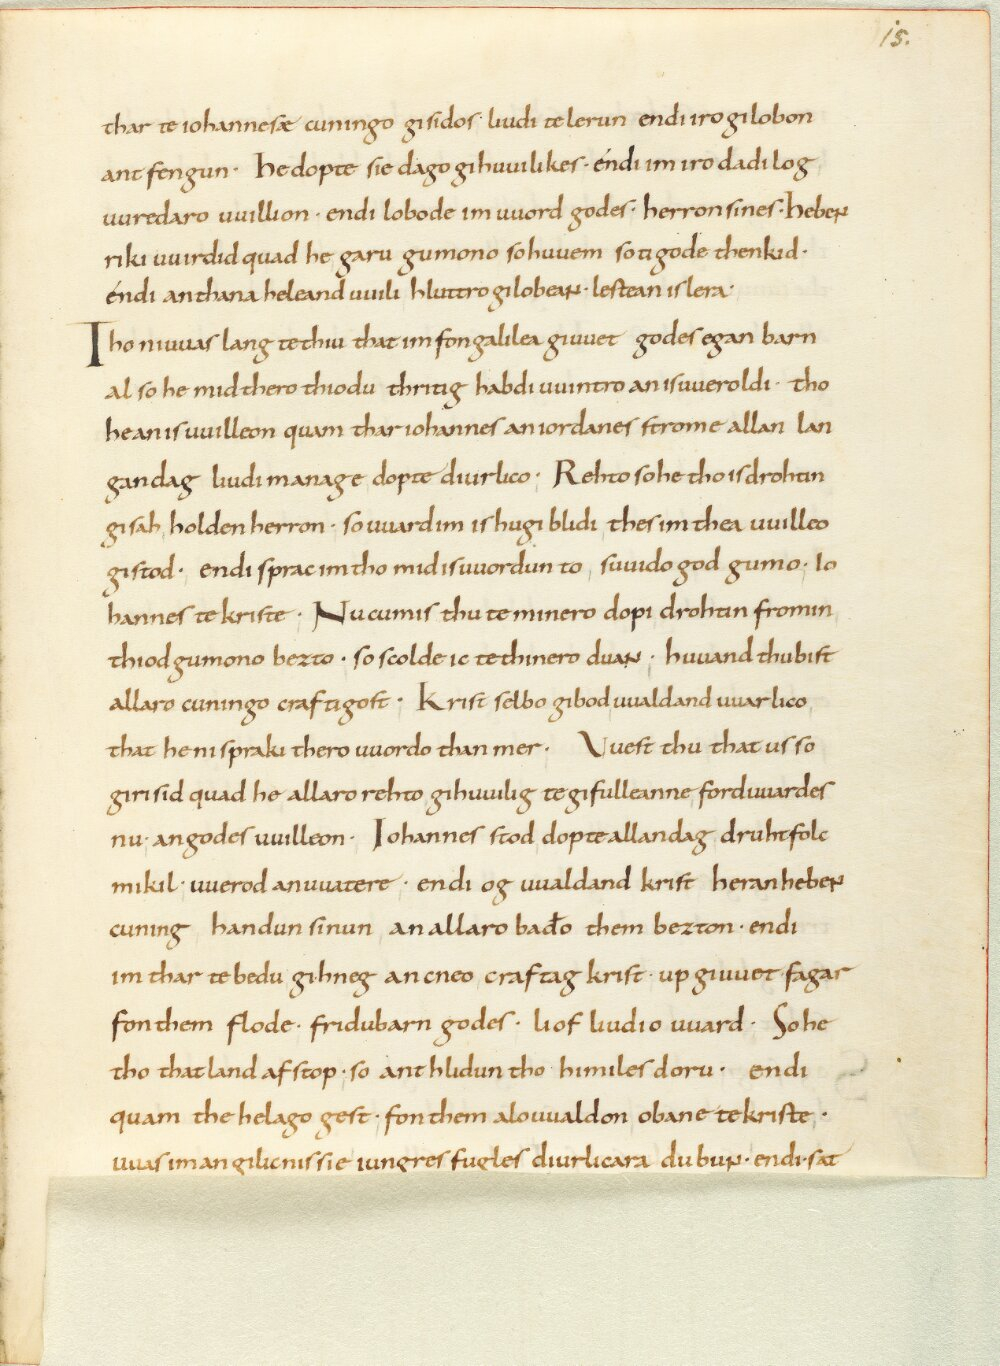 15.
thar te iohannesæ cuningo gisidos· liudi te lerun endi iro gilobon
ant fengun· he dopte sie dago gihuuilikes· éndi im iro dadi log
uuredaro uuillion· endi lobode im uuord godes· herron sines· heben
riki uuirdid quad he garu gumono so huuem so ti gode thenkid·
éndi an thana heleand uuili hluttro gilobean· lestean is lera·
Tho ni uuas lang te thiu that im fon galilea giuuet godes egan barn
al so he mid thero thiodu thritig habdi uuintro an is uueroldi· tho
he an is uuilleon quam thar iohannes an iordanes strome allan lan
gan dag liudi manage dopte diurlico· Rehto so he tho is drohtin
gisah holden herron· so uuard im is hugi blidi thes im thea uuilleo
gistod· endi sprac im tho mid is uuordun to suuido god gumo· Io
hannes te kriste· Nu cumis thu te minero dopi drohtin fromin
thiod gumono bezto· so scolde ic te thinero duan· huuand thu bist
allaro cuningo craftigost· Krist selbo gibod uualdand uuarlico
that he ni spraki thero uuordo than mer· Vuest thu that us so
girisid quad he allaro rehto gihuuilig te gifulleanne forduuardes
nu· an godes uuilleon· Iohannes stod dopte allan dag druhtfolc
mikil· uuerod an uuatere· endi og uualdand krist heran heben
cuning handun sinun an allaro bađo them bezton· endi
im thar te bedu gihneg an cneo craftag krist· up giuuet fagar
fon them flode· fridubarn godes· liof liudio uuard· So he
tho that land afstop· so anthlidun tho himiles doru· endi
quam the helago gest· fon them alouualdon obane te kriste·
uuas im an gilicnissie iungres fugles diurlicara dubun· endi sat